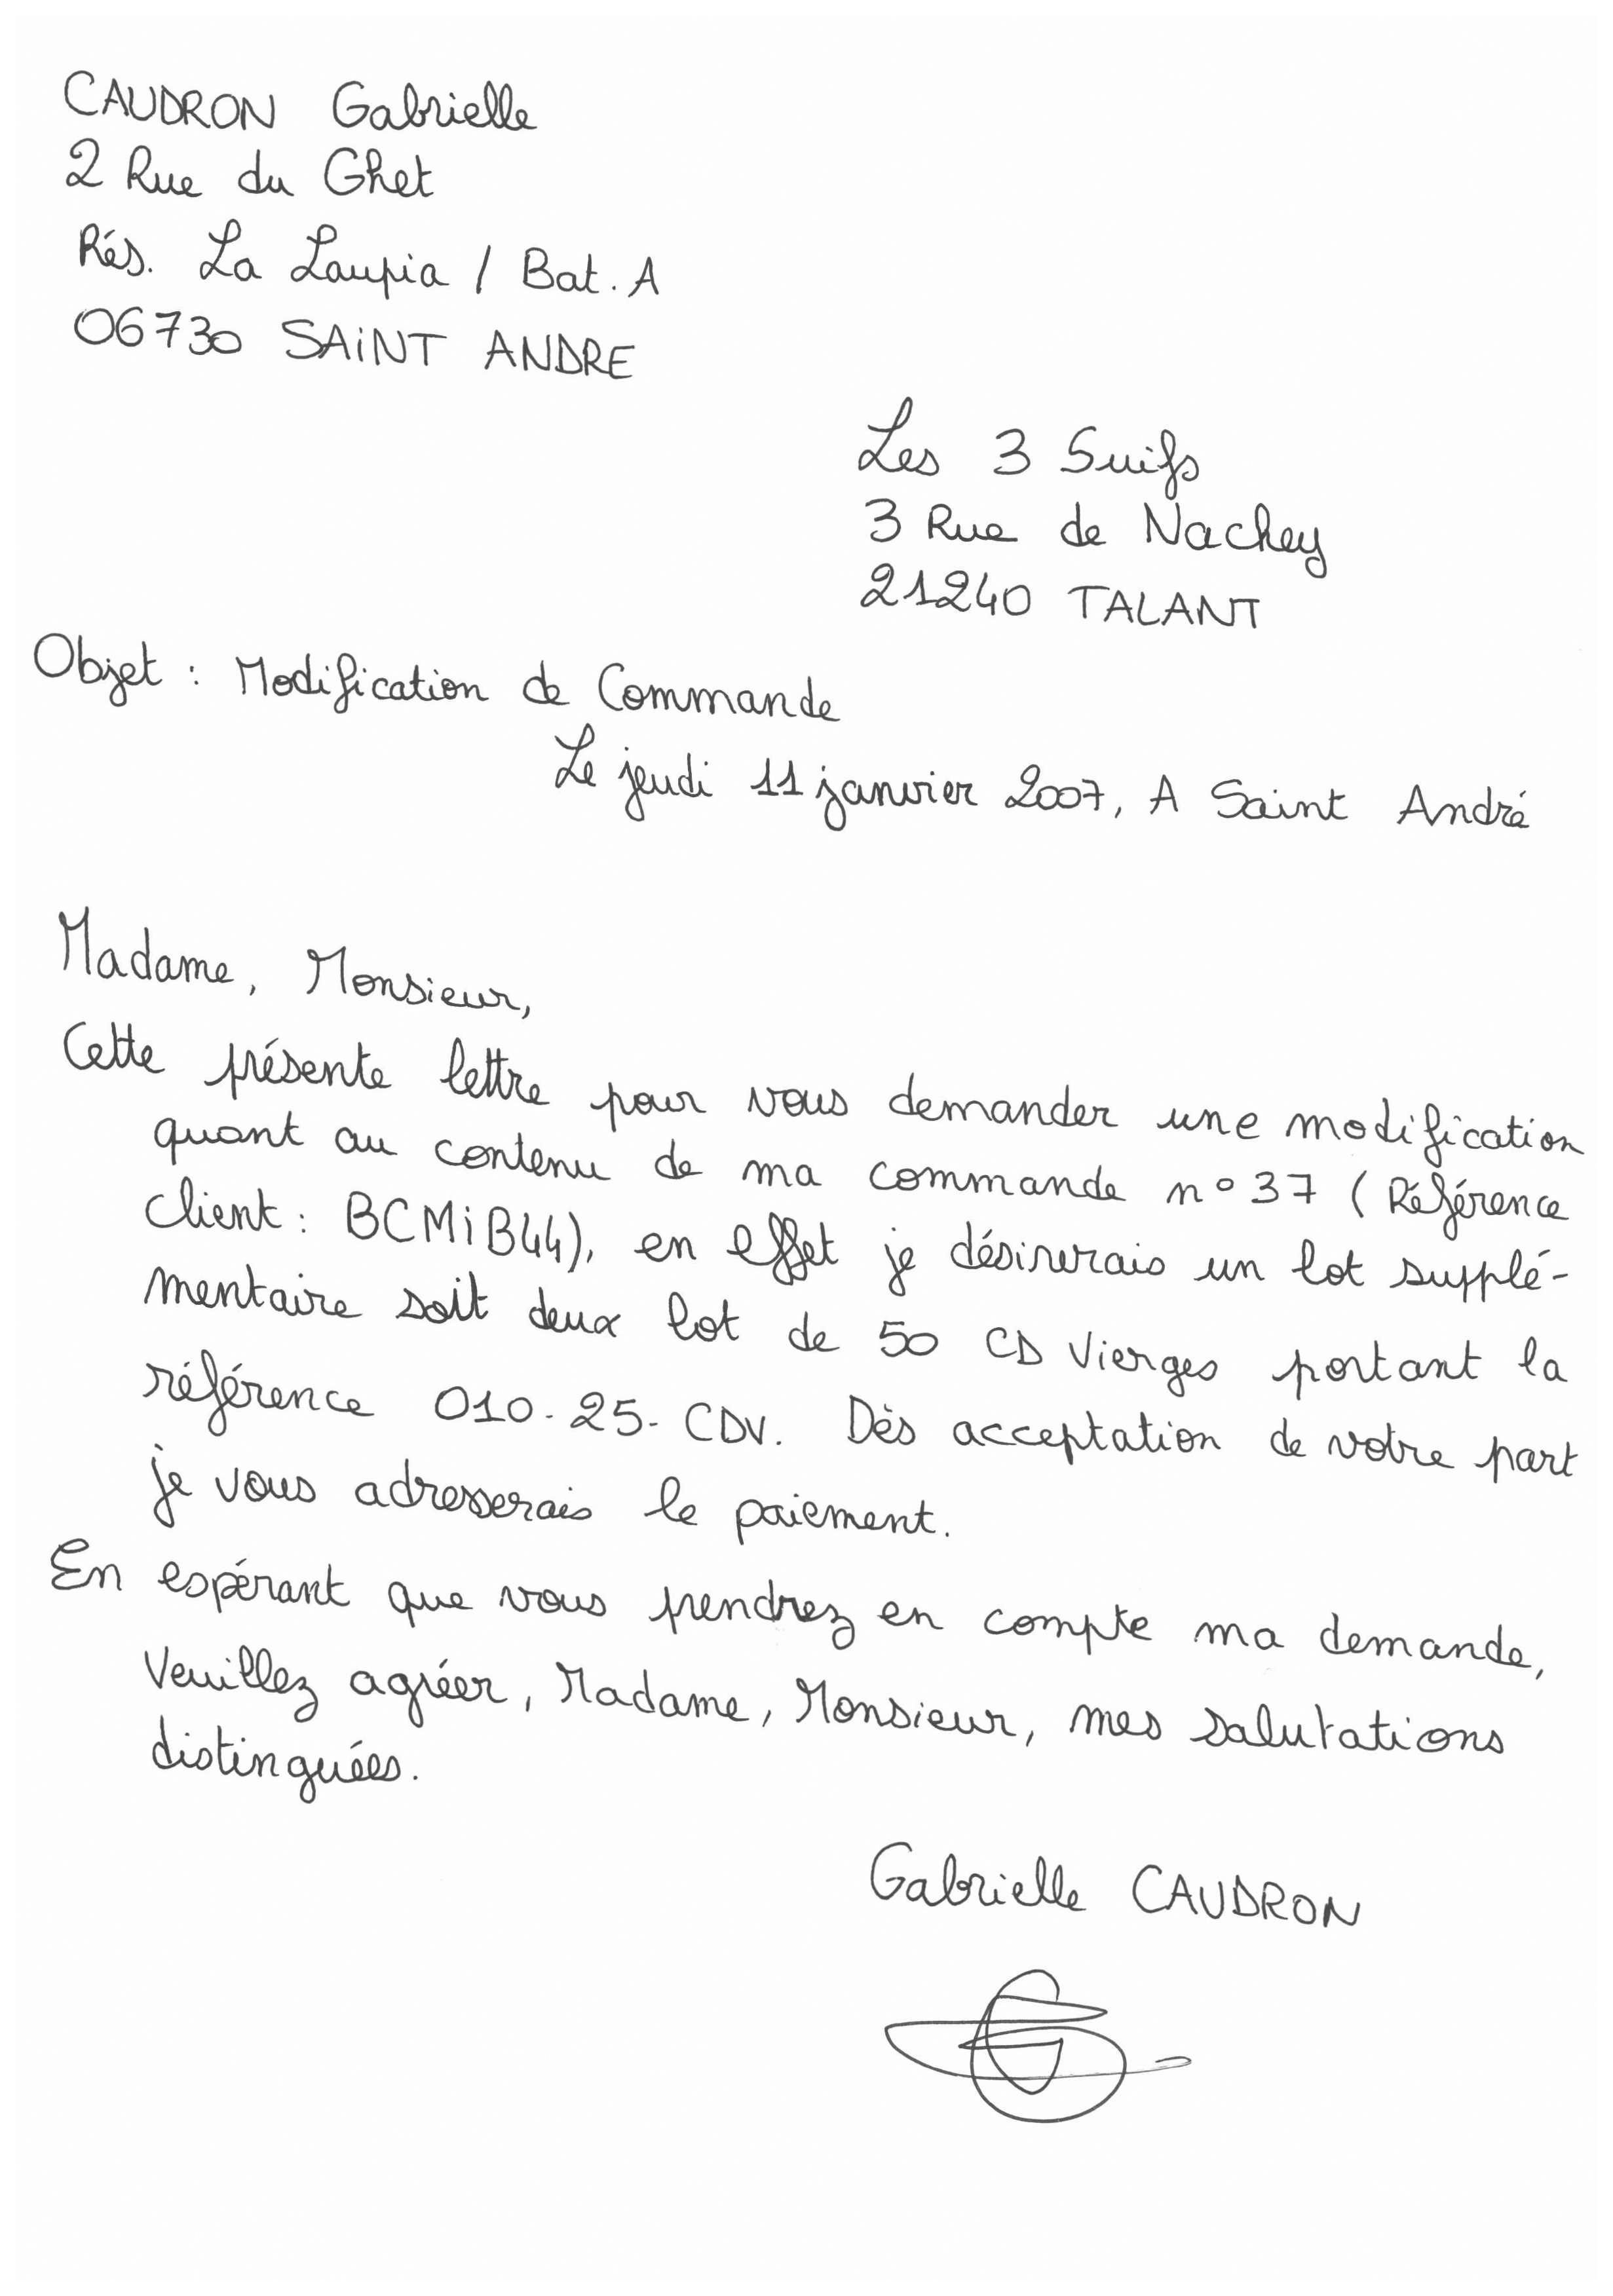 CAUDRON Gabrielle
2 Rue du Ghet
Rés. La Laupia / Bat. A
06730 SAiNT ANDRE
Les 3 Suifs
3 Rue de Nachey
21240 TALANT
Objet : Modification de Commande
Le jeudi 11 janvier 2007, A Saint André
Madame, Monsieur,
Cette présente lettre pour vous demander une modification
quant au contenu de ma commande n°37 (Référence
client : BCMiB44), en effet je désirerais un lot supplé-
mentaire soit deux lot de 50 CD Vierges portant la
référence 010-25-CDV. Dès acceptation de votre part
je vous adresserais le paiement.
En espérant que vous prendrez en compte ma demande,
Veuillez agréer, Madame, Monsieur, mes salutations
distinguées.
Gabrielle CAUDRON